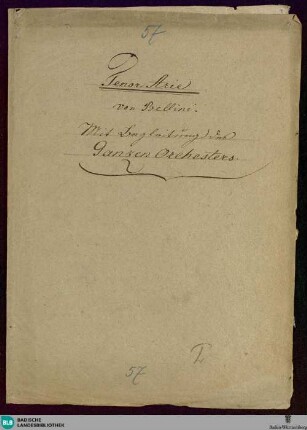 57
Tenor Arie
von Bellini.
Mit Begleitung des
Ganzen Orchesters.
57
I
BLB BADISCHE
LANDESBIBLIOTHEK
Baden-Württemberg